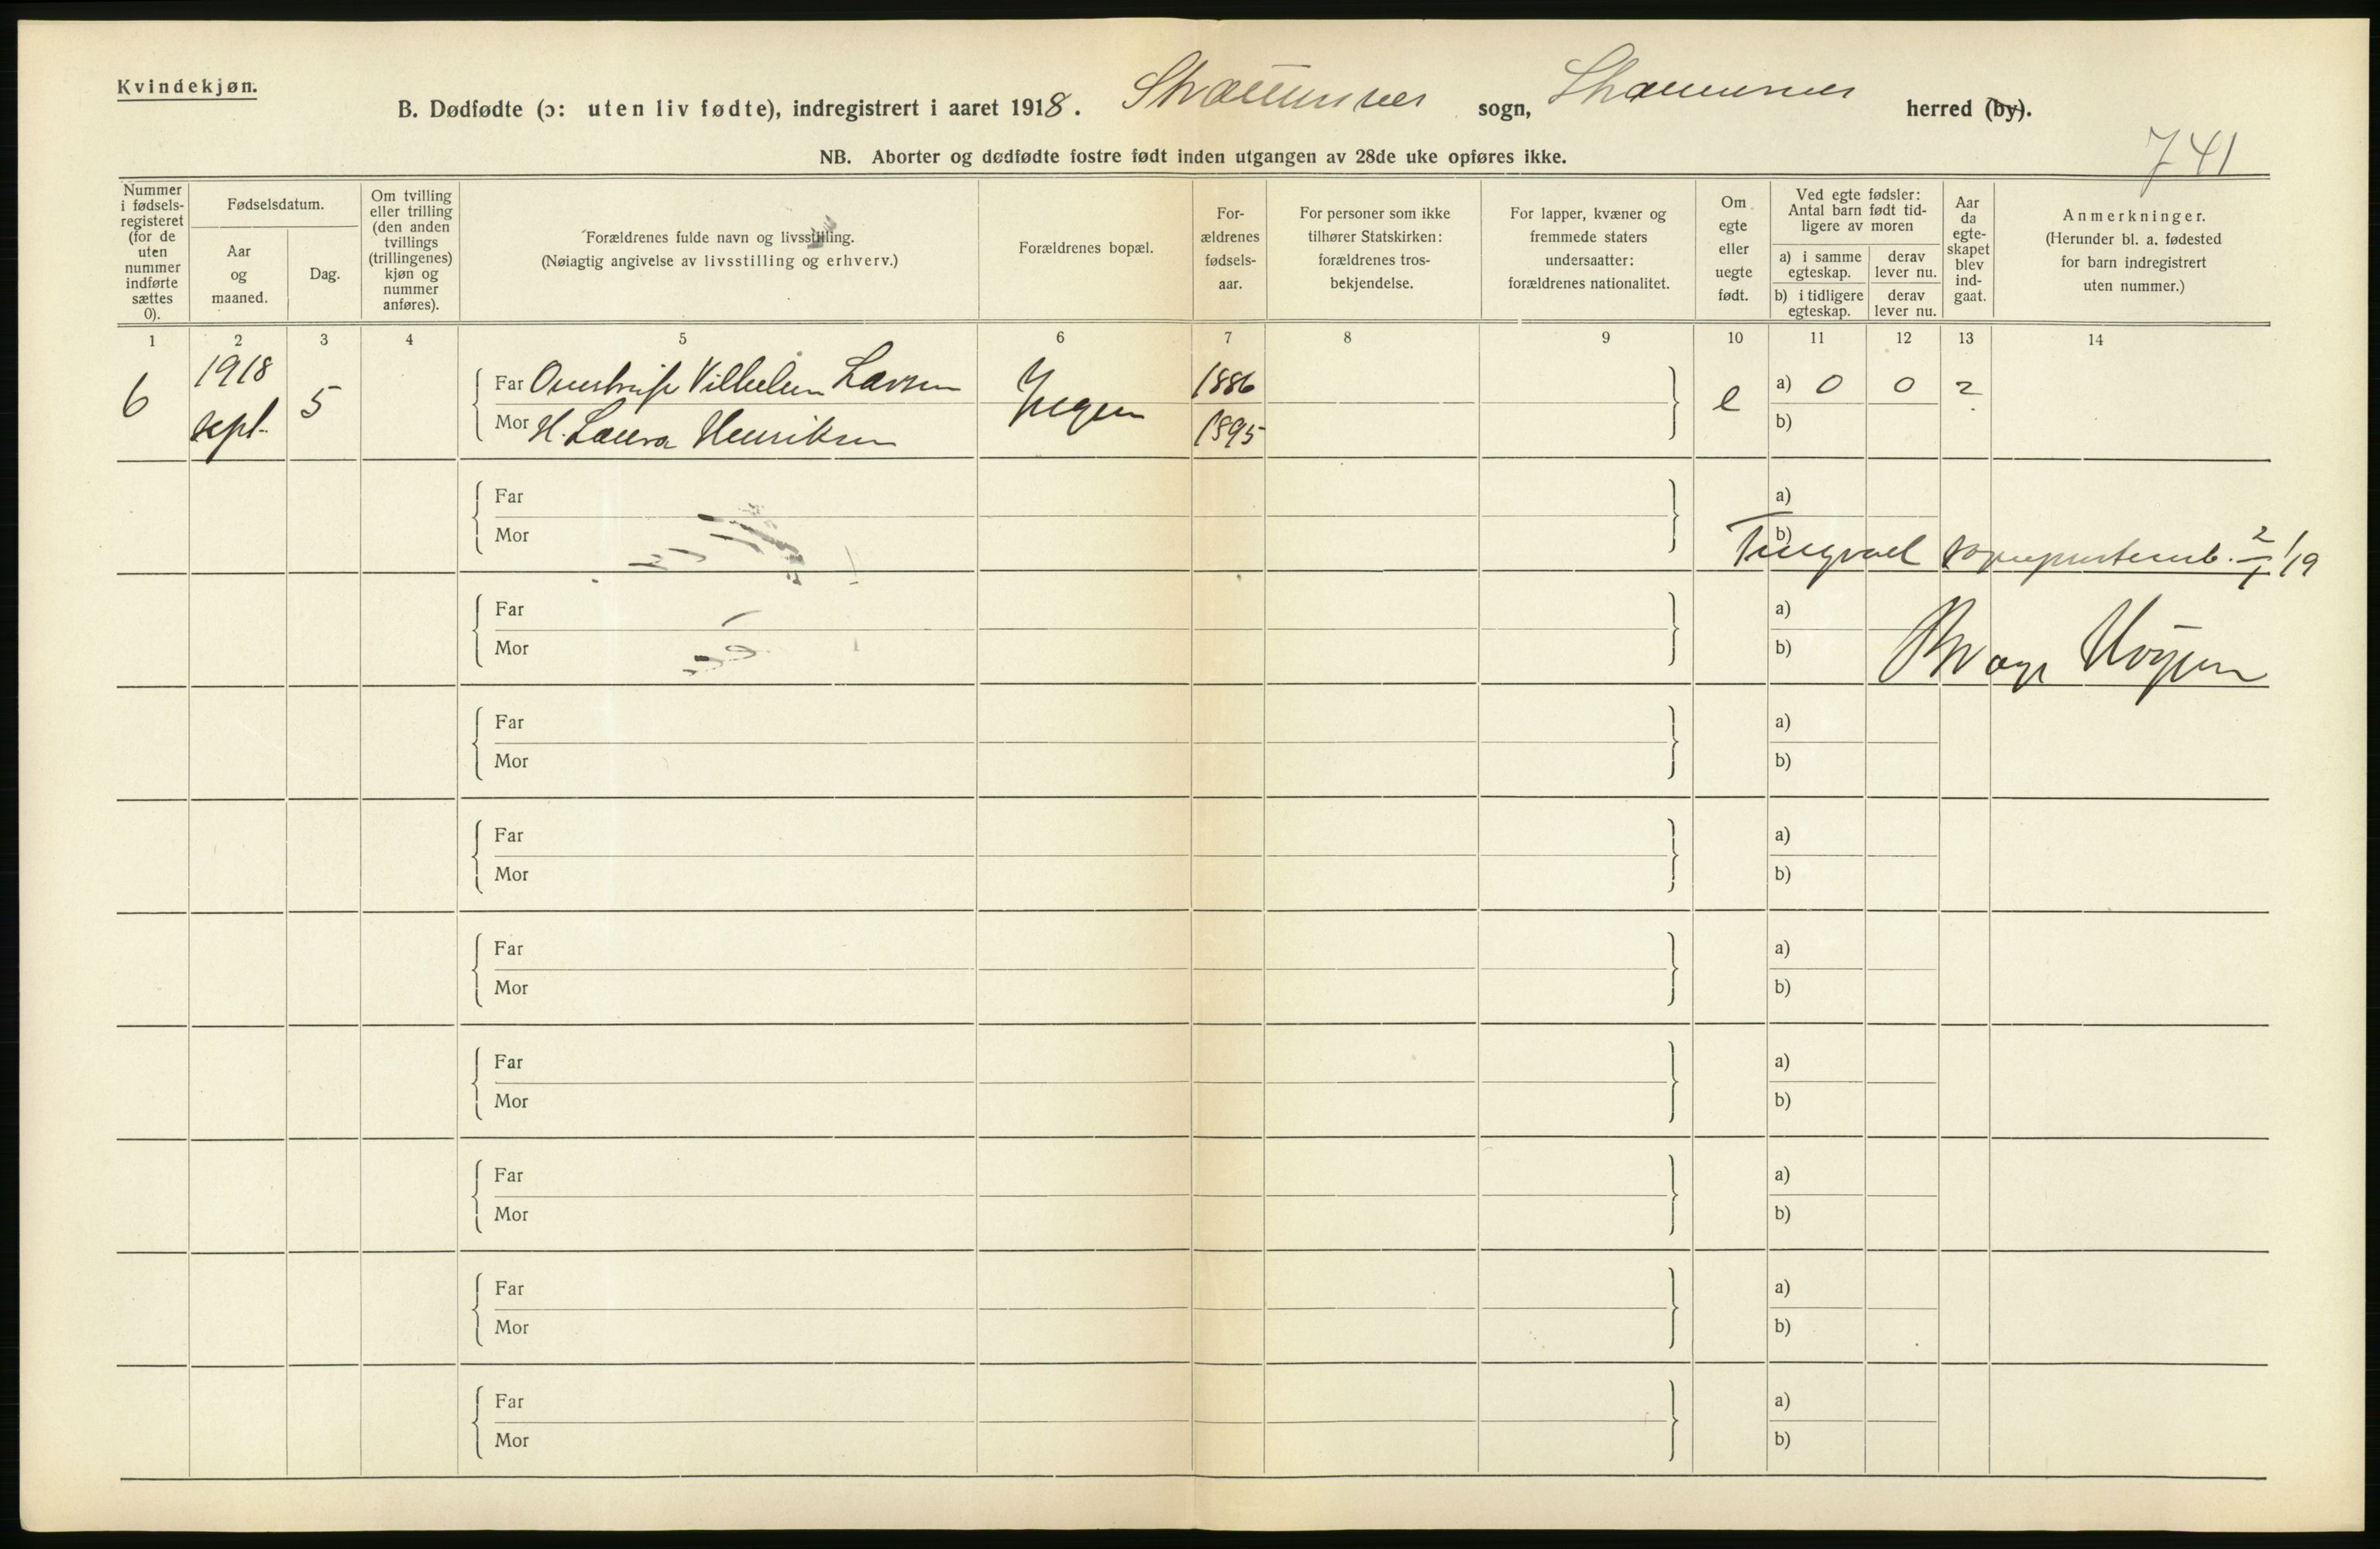 Kvindekjøn.
B. Dødfødte (ɔ: uten liv fødte), indregistrert i aaret 1918. Straumsnes sogn, Straumsnes herred (by).
741
NB. Aborter og dødfødte fostre født inden utgangen av 28de uke opføres ikke.
Nummer i fødselsregisteret (for de uten nummer indførte sættes 0).
Fødselsdatum.
Aar og maaned.
Dag.
Om tvilling eller trilling (den anden tvillings (trillingenes) kjøn og nummer anføres).
Forældrenes fulde navn og livsstilling.
(Nøiagtig angivelse av livsstilling og erhverv.)
Forældrenes bopæl.
For-ældrenes fødsels-aar.
For personer som ikke tilhører Statskirken: forældrenes tros-bekjendelse.
For lapper, kvæner og fremmede staters undersaatter: forældrenes nationalitet.
Om egte eller uegte født.
Ved egte fødsler: Antal barn født tid-ligere av moren
a) i samme egteskap.
derav lever nu.
b) i tidligere egteskap.
derav lever nu.
Aar da egte-skapet blev ind-gaat.
Anmerkninger.
(Herunder bl. a. fødested for barn indregistrert uten nummer.)
1 2 3 4 5 6 7 8 9 10 11 12 13 14
6 1918 sept. 5 Far Vilhelm Larsen 1886 e a) 0 0 2
Mor H. Laura Henriksen 1895 b)
Far a)
Mor b)
Tingvoll 2/1 19
Far a)
Mor b)
Far a)
Mor b)
Far a)
Mor b)
Far a)
Mor b)
Far a)
Mor b)
Far a)
Mor b)
Far a)
Mor b)
Far a)
Mor b)